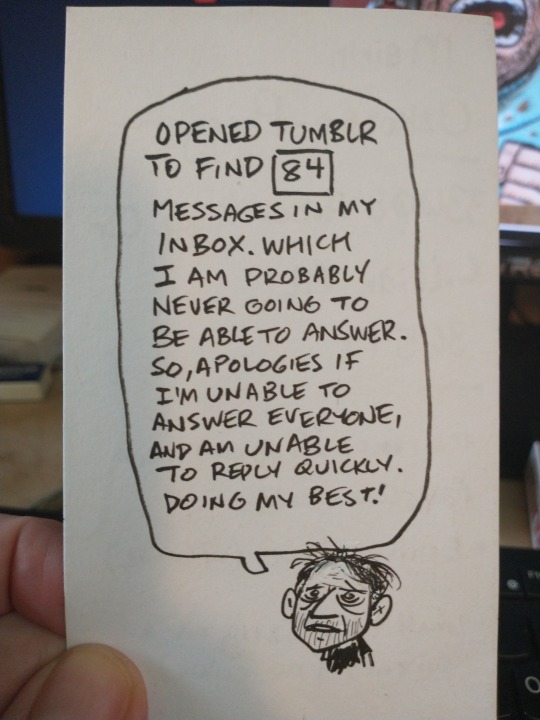 OPENED TUMBLR
TO FIND 84
MESSAGES IN MY
INBOX. WHICH
I AM PROBABLY
NEVER GOING TO
BE ABLE TO ANSWER.
SO, APOLOGIES IF
I'M UNABLE TO
ANSWER EVERYONE,
AND AM UNABLE
TO REPLY QUICKLY.
DOING MY BEST!